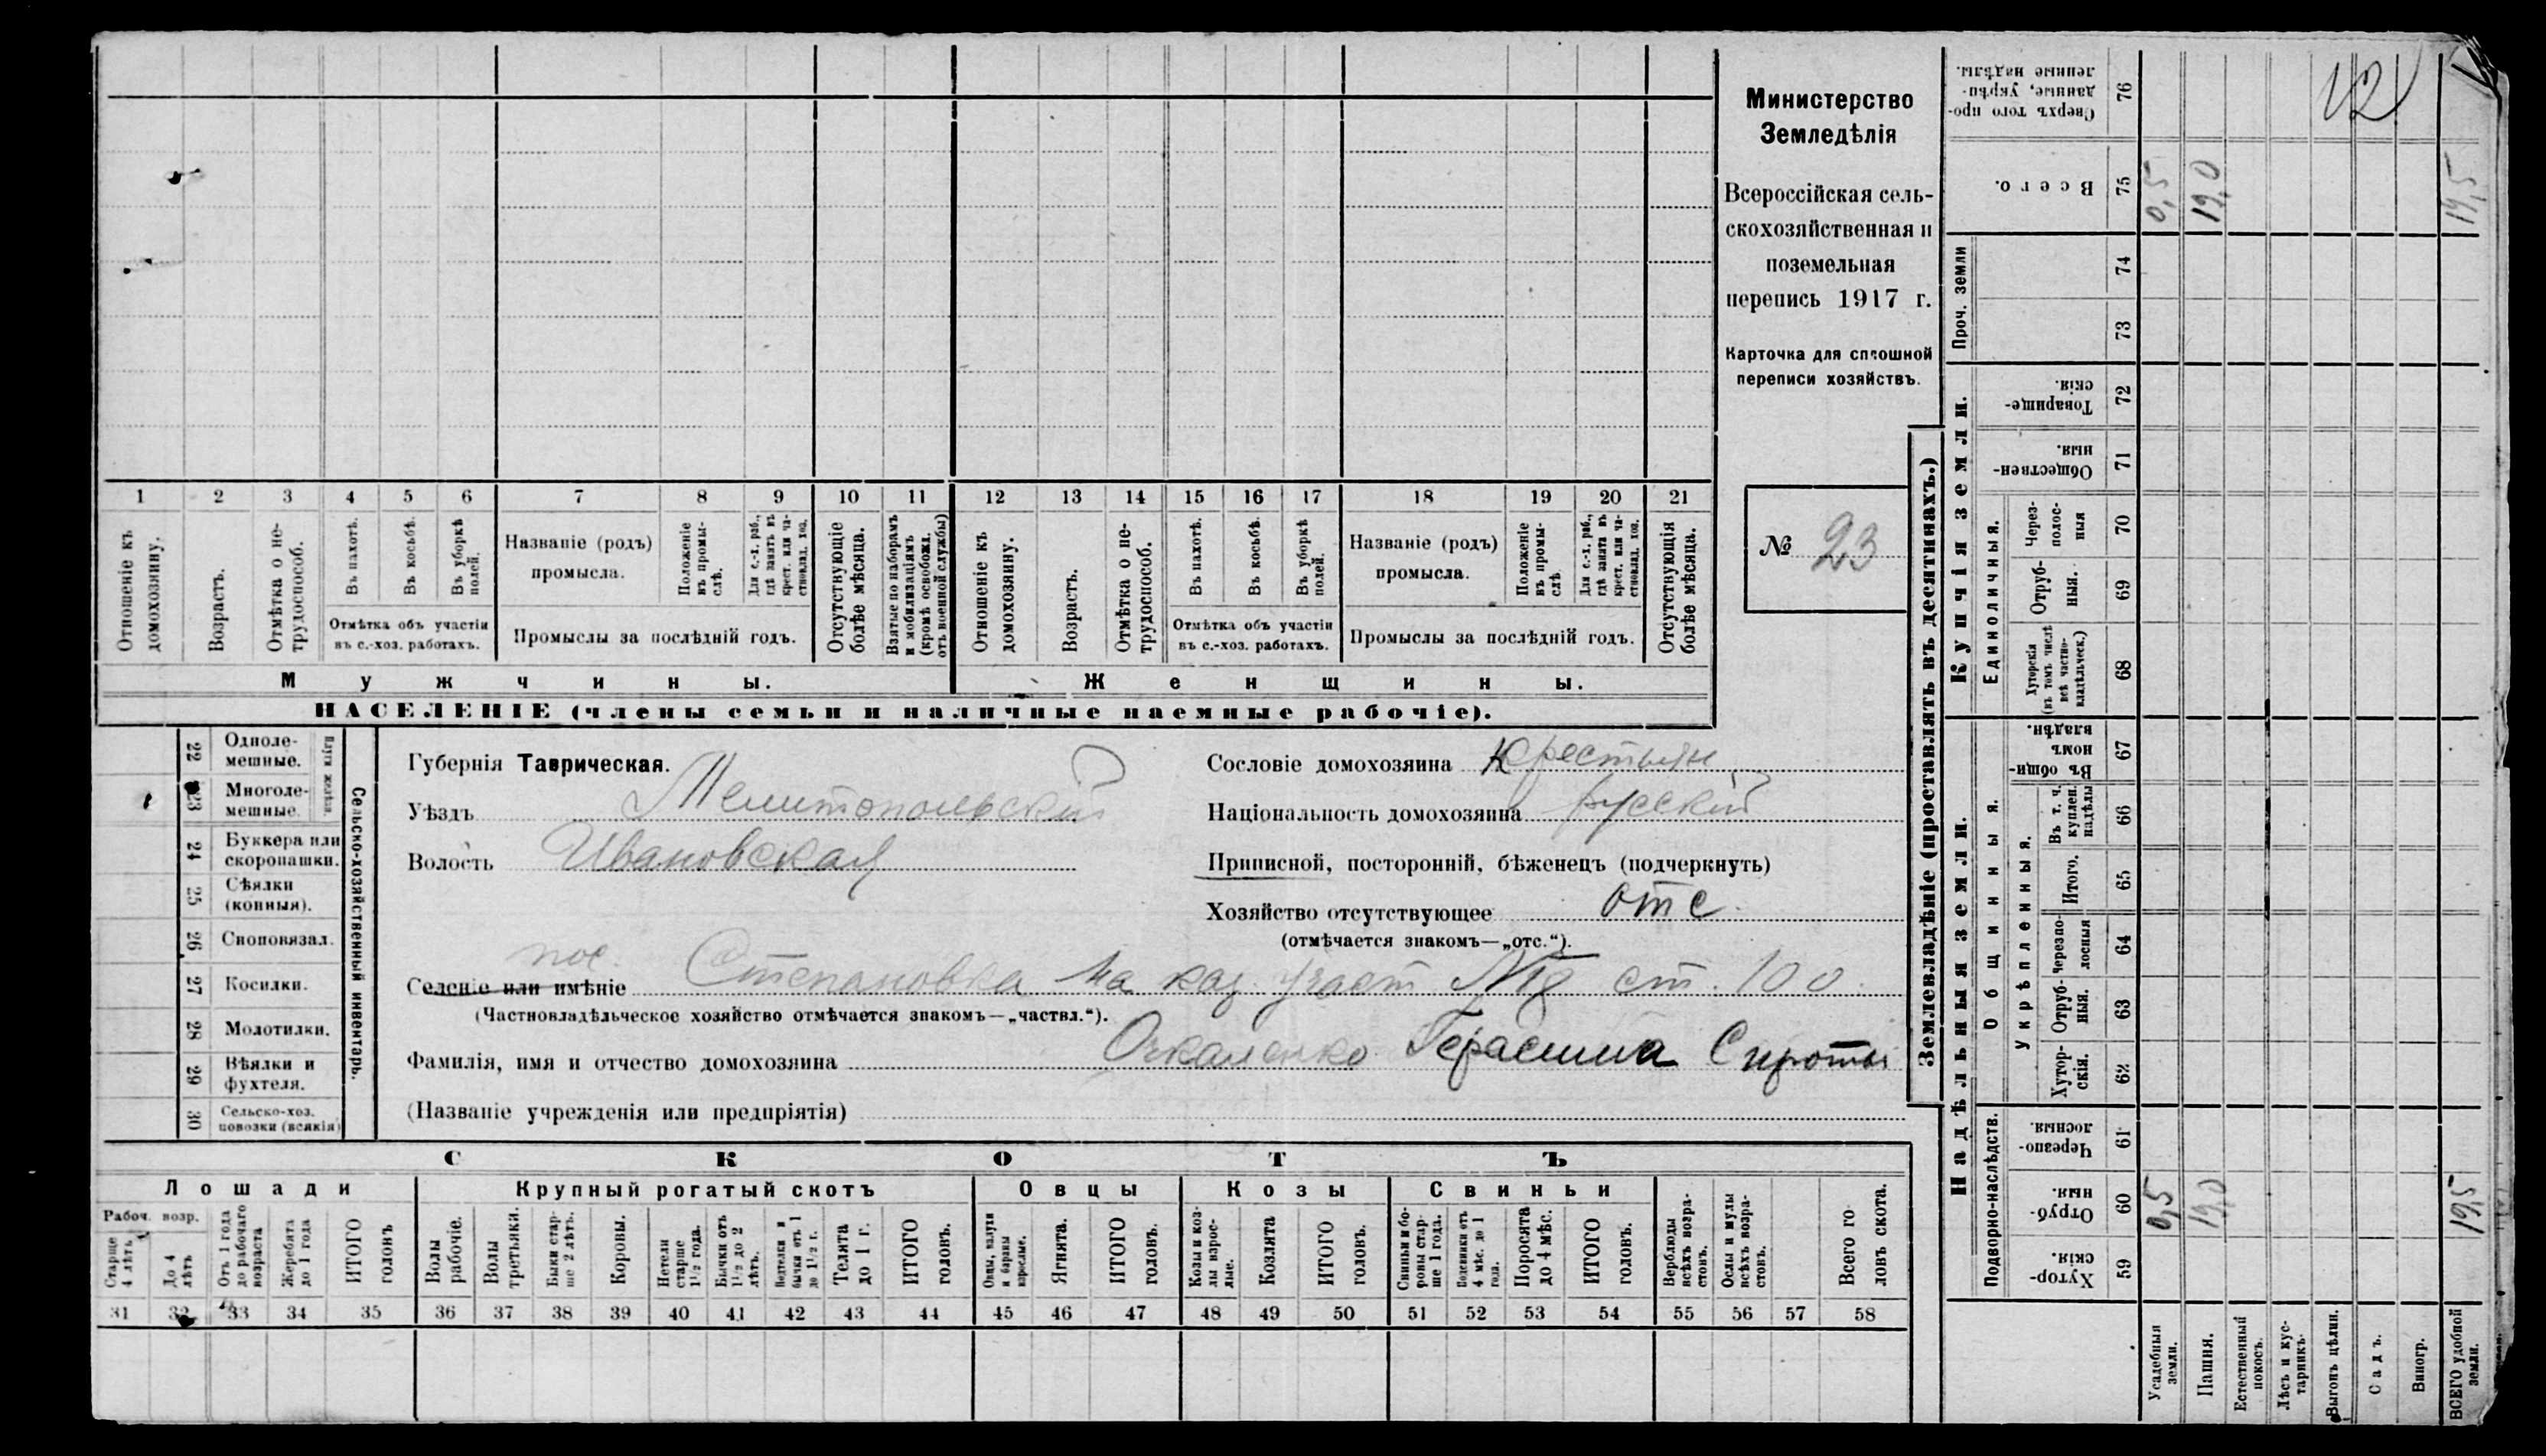 1 2 3 4 5 6 7 8 9 10 11 12 13 14 15 16 17 18 19 20 21
Отношеніе къ домохозяину.
Возрастъ.
Отмѣтка о не-
трудоспособ.
Въ пахотѣ.
Въ косьбѣ.
Въ уборкѣ полей.
Отмѣтка объ участіи
въ с.-хоз. работахъ.
Названіе (родъ)
промысла.
Положеніе въ промы-
слѣ.
Для с.-х. раб., гдѣ занятъ въ крест. или ча-
стновлад. хоз.
Промыслы за послѣдній годъ.
Отсутствующіе болѣе мѣсяца.
Взятые по наборамъ и мобилизаціямъ (кромѣ освобожд. отъ военной службы)
Отношеніе къ домохозяину.
Возрастъ.
Отмѣтка о не-
трудоспособ.
Въ пахотѣ.
Въ косьбѣ.
Въ уборкѣ полей.
Отмѣтка объ участіи
въ с.-хоз. работахъ.
Названіе (родъ)
промысла.
Положеніе въ промы-
слѣ.
Для с.-х. раб., гдѣ занята въ крест. или ча-
стновлад. хоз.
Промыслы за послѣдній годъ.
Отсутствующія болѣе мѣсяца.
Мужчины.
Женщины.
НАСЕЛЕНІЕ (члены семьи и наличные наемные рабочіе).
Министерство
Земледѣлія
Всероссійская сель-
скохозяйственная и
поземельная
перепись 1917 г.
Карточка для сплошной
переписи хозяйствъ.
№ 23
22 Одноле-
мешные.
23 Многоле-
мешные.
24 Буккера или
скоропашки.
25 Сѣялки
(конныя).
26 Сноповязал.
27 Косилки.
28 Молотилки.
29 Вѣялки и
фухтеля.
30 Сельско-хоз.
повозки (всякія)
Сельско-хозяйственный инвентарь.
Губернія Таврическая.
Уѣздъ Мелитопольскій
Волость Ивановская
Сословіе домохозяина крестьян
Національность домохозяина русскій
Приписной, посторонній, бѣженецъ (подчеркнуть)
Хозяйство отсутствующее отс.
(отмѣчается знакомъ—„отс.“).
пос.
Селеніе или имѣніе Степановка на каз. участ № ст. 100.
(Частновладѣльческое хозяйство отмѣчается знакомъ—„частвл.“).
Фамилія, имя и отчество домохозяина Очкаленко Герасима Сироты
(Названіе учрежденія или предпріятія)
СКОТЪ
Лошади
Крупный рогатый скотъ
Овцы
Козы
Свиньи
Рабоч. возр.
Старше 4 лѣтъ
До 4 лѣтъ
Отъ 1 года до рабочаго возраста
Жеребята до 1 года
ИТОГО головъ
Волы рабочіе.
Волы третьяки.
Быки стар-
ше 2 лѣтъ.
Коровы.
Нетели старше 1½ года.
Бычки отъ 1½ до 2 лѣтъ.
Нетелки и бычки отъ 1 до 1½ г.
Телята до 1 г.
ИТОГО головъ.
Овцы, валухи и бараны взрослые.
Ягнята.
ИТОГО головъ.
Козы и коз-
лы взрос-
лые.
Козлята
ИТОГО головъ.
Свиньи и бо-
ровы стар-
ше 1 года.
Подсвинки отъ 4 мѣс. до 1 года.
Поросята до 4 мѣс.
ИТОГО головъ.
Верблюды всѣхъ возра-
стовъ.
Ослы и мулы всѣхъ возра-
стовъ.
Всего го-
ловъ скота.
31 32 33 34 35 36 37 38 39 40 41 42 43 44 45 46 47 48 49 50 51 52 53 54 55 56 57 58
Землевладѣніе (проставлять въ десятинахъ.)
Надѣльныя земли.
Купчія земли.
Проч. земли
Подворно-наслѣдств.
Общинныя.
Укрѣпленныя.
Единоличныя.
Сверхъ того про-
данные, укрѣп-
ленные надѣлы.
76
Всего.
75
74
73
Товарище-
скія.
72
Обществен-
ныя.
71
Через-
полос-
ныя
70
Отруб-
ныя.
69
Хуторскія (въ томъ числѣ всѣ частно-
владѣльческ.)
68
Въ общин-
номъ
владѣн.
67
Въ т. ч. куплен. надѣлы
66
Итого.
65
Черезпо-
лосныя
64
Отруб-
ныя.
63
Хутор-
скія.
62
Черезпо-
лосныя.
61
Отруб-
ныя.
60
Хутор-
скія.
59
Усадебныя земли.
Пашня.
Естественный покосъ.
Лѣсъ и кус-
тарникъ.
Выгонъ цѣлин.
Садъ.
Виногр.
ВСЕГО удобной земли.
12
0,5
19,0
19,5
0,5
19,0
19,5